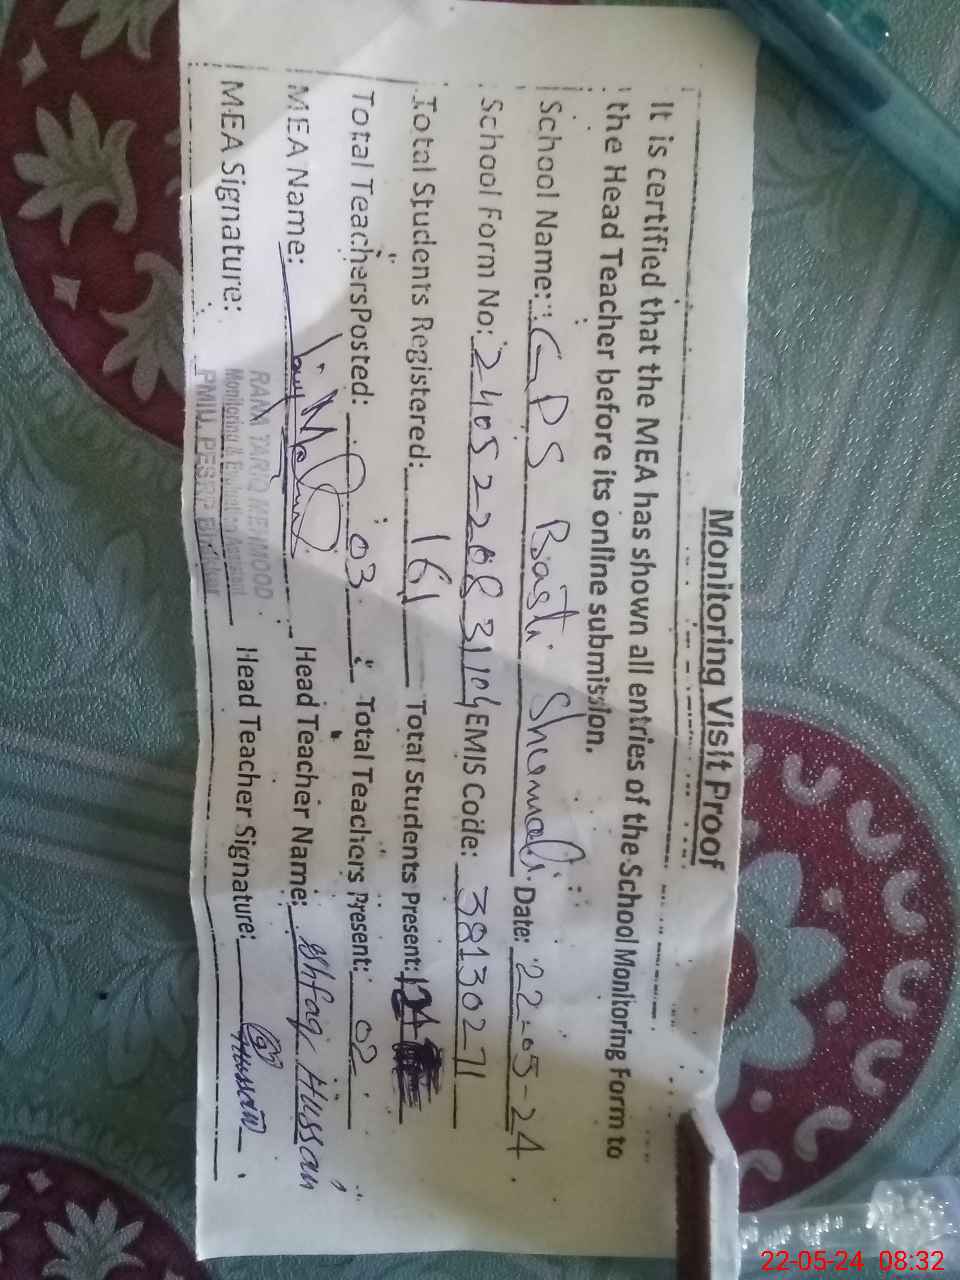 Monitoring Visit Proof
It is certified that the MEA has shown all entries of the School Monitoring Form to
the Head Teacher before its online submission.
School Name: GPS Basti Shumali Date: 22-05-24
School Form No: 24052208 31104 EMIS Code: 38130271
Total Students Registered: 161 Total Students Present: 124
Total Teachers Posted: 03 Total Teachers Present: 02
MEA Name: Head Teacher Name: Ishfaq Hussain
MEA Signature: Head Teacher Signature: Hussain
TARIQ MEHMOOD
Monitoring &
PMIU, PESRP
22-05-24 08:32